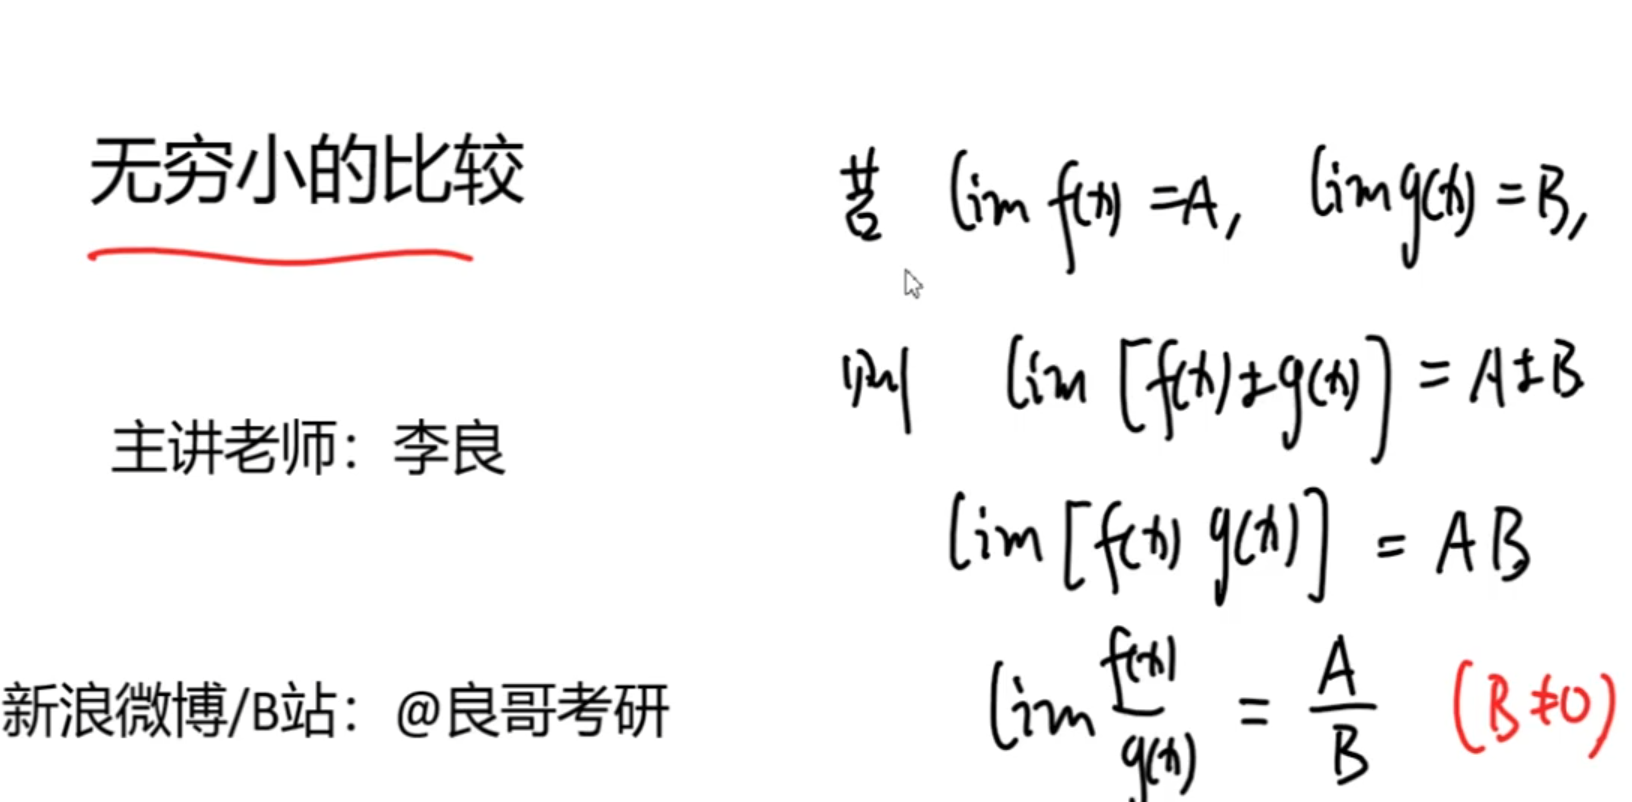 无穷小的比较
主讲老师：李良
新浪微博/B站：@良哥考研
若 lim f(x) = A, lim g(x) = B,
则 lim [f(x) ± g(x)] = A ± B
lim [f(x) g(x)] = A B
lim f(x)/g(x) = A/B (B ≠ 0)